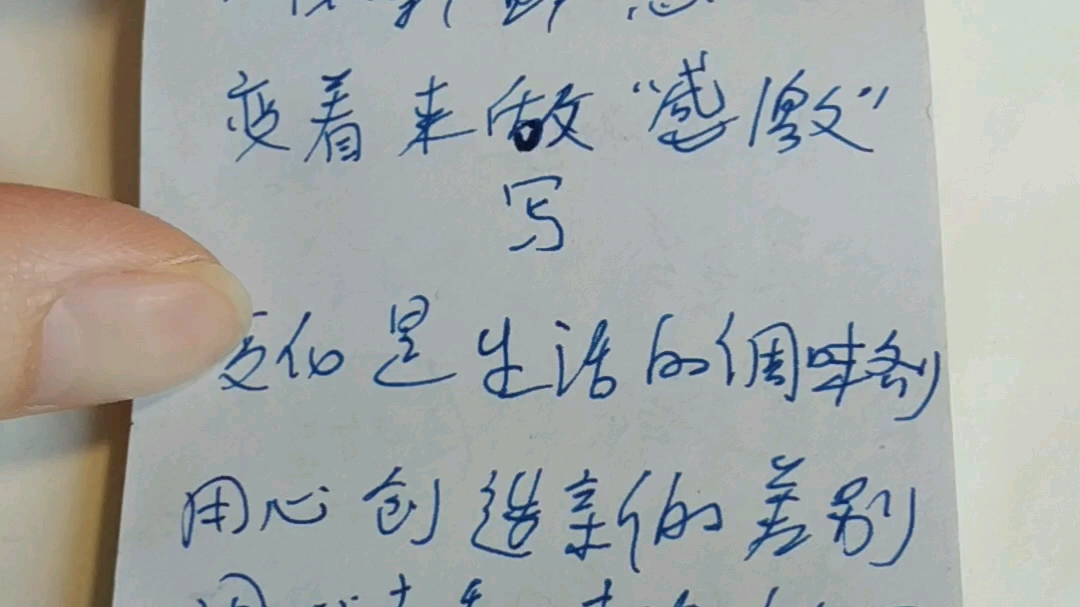 变着来做“感激”
写
变化是生活的调味剂
用心创造新的差别